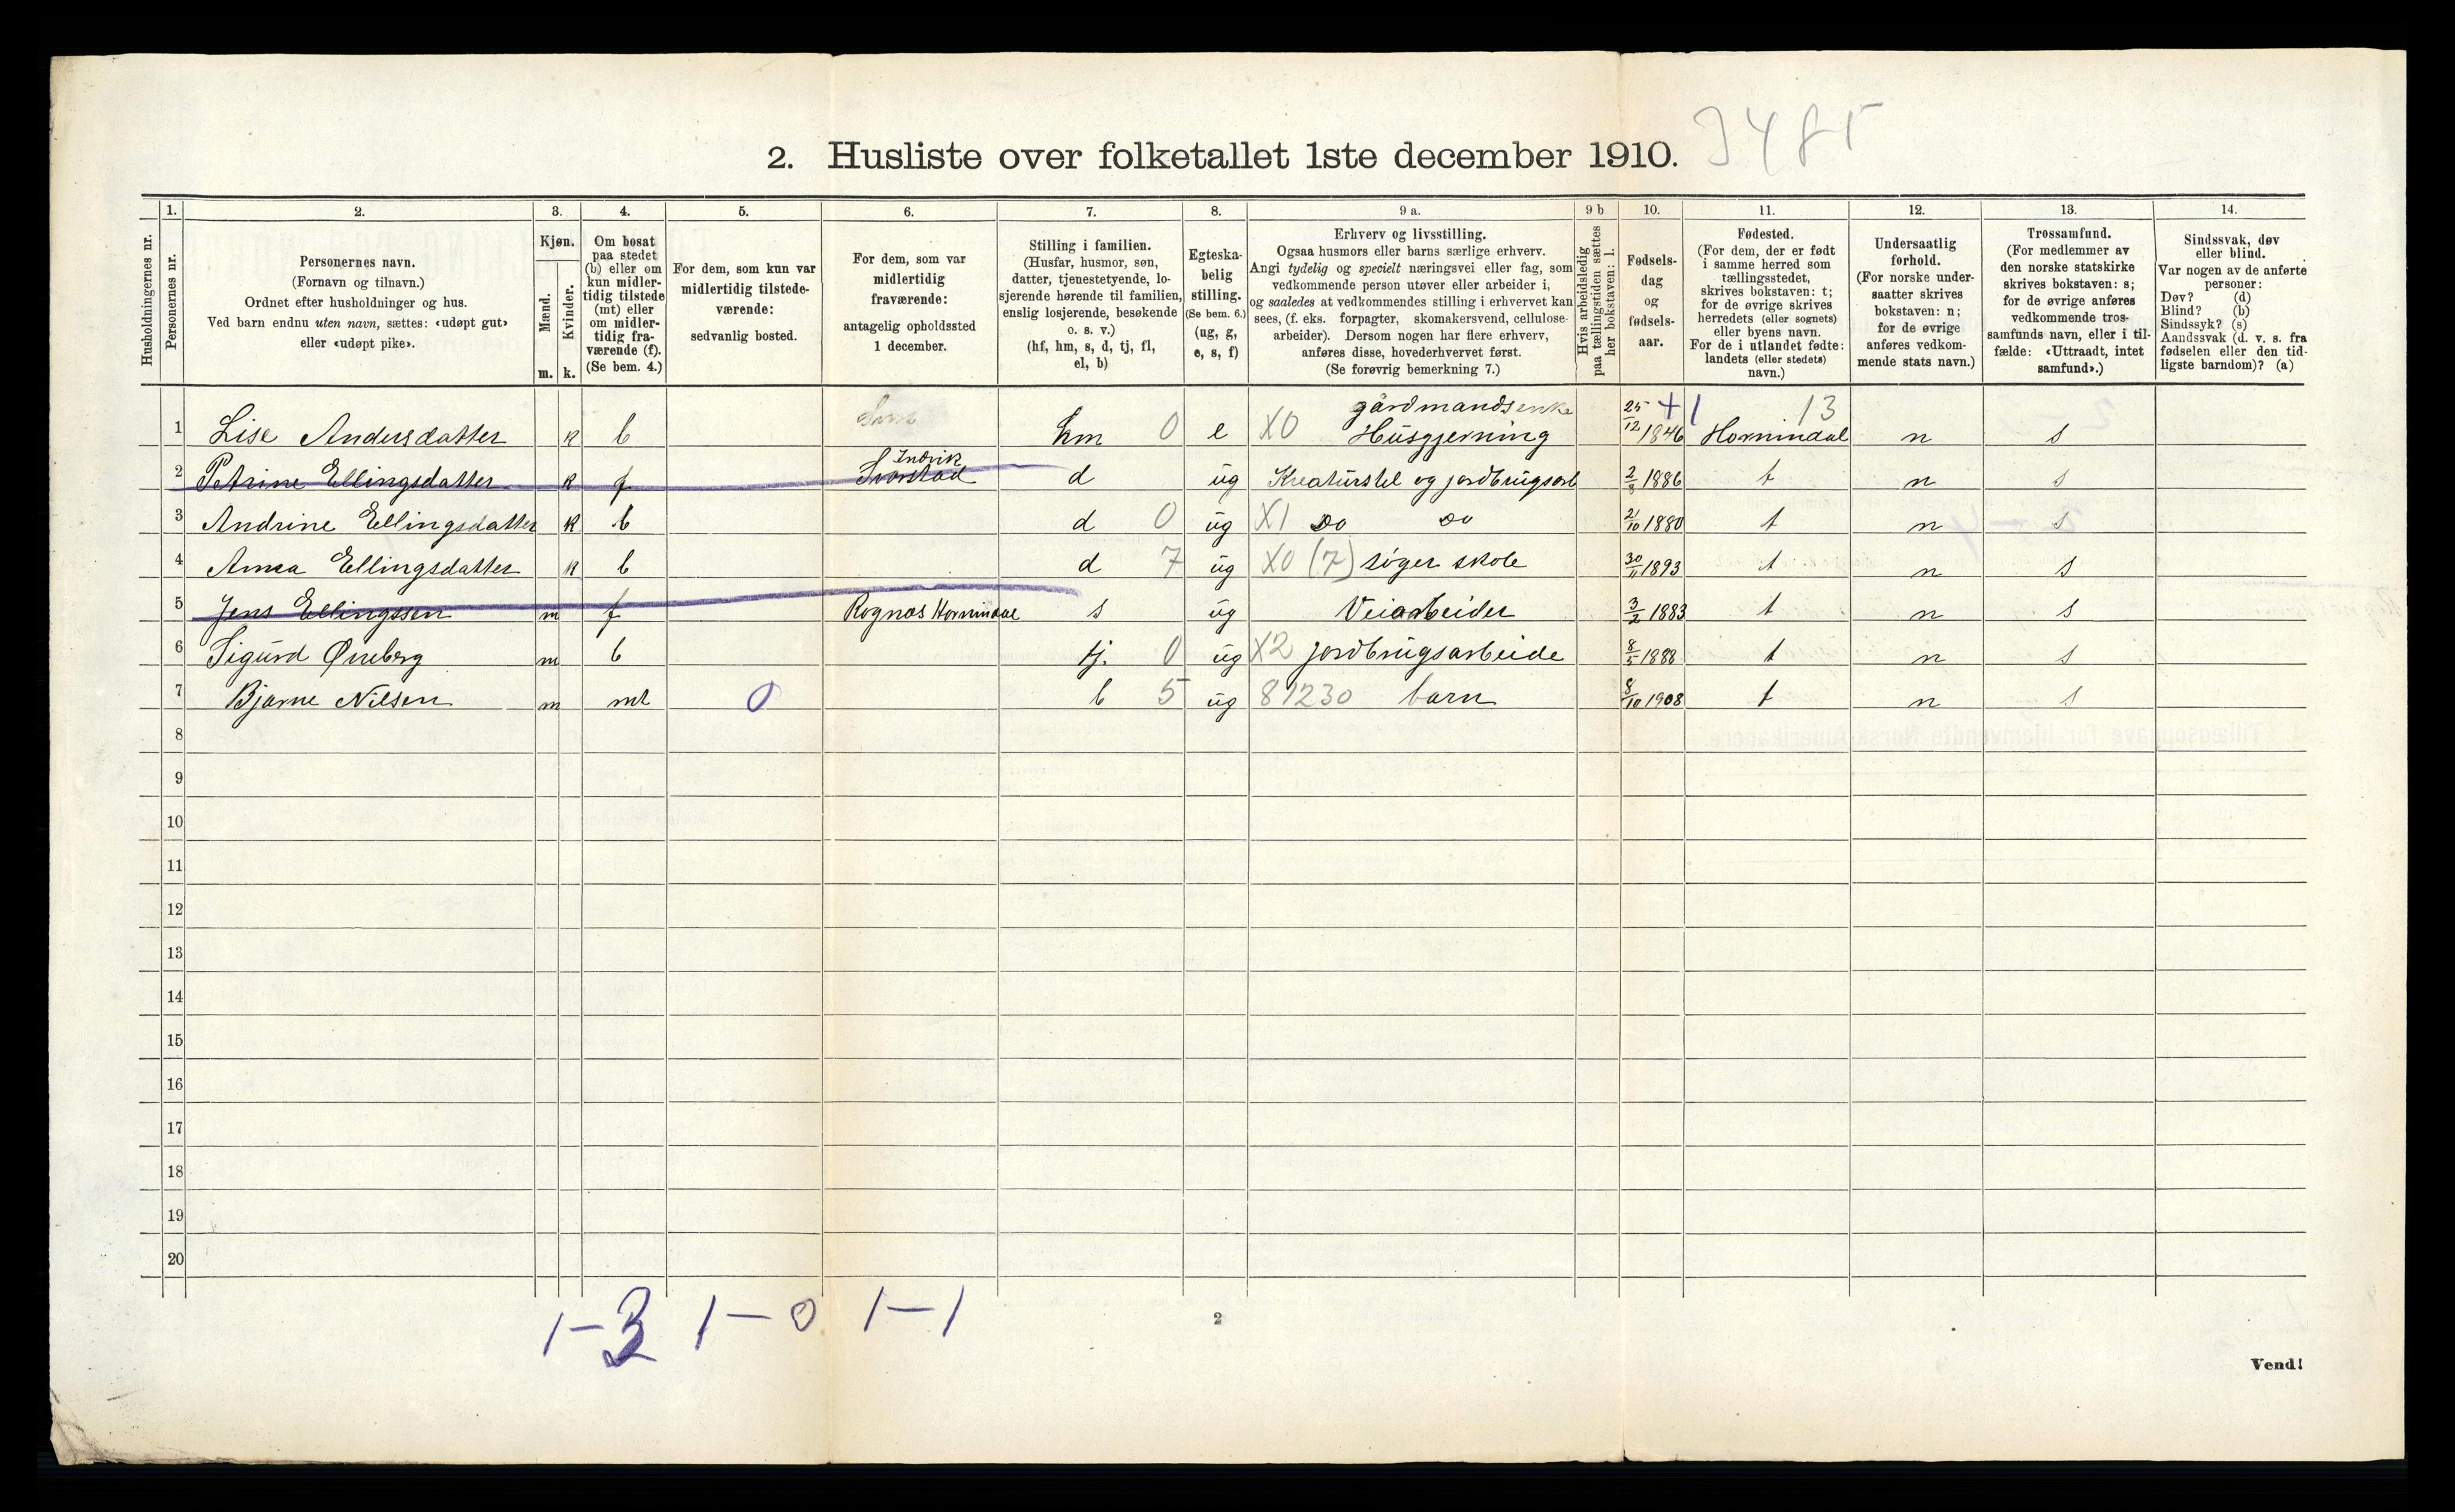 2. Husliste over folketallet 1ste december 1910. 3485
Husholdningernes nr.
1. Personernes nr.
2. Personernes navn. (Fornavn og tilnavn.) Ordnet efter husholdninger og hus. Ved barn endnu uten navn, sættes: «udøpt gut» eller «udøpt pike».
3. Kjøn. Mænd. m. Kvinder. k.
4. Om bosat paa stedet (b) eller om kun midlertidig tilstede (mt) eller om midlertidig fraværende (f). (Se bem. 4.)
5. For dem, som kun var midlertidig tilstedeværende: sedvanlig bosted.
6. For dem, som var midlertidig fraværende: antagelig opholdssted 1 december.
7. Stilling i familien. (Husfar, husmor, søn, datter, tjenestetyende, losjerende hørende til familien, enslig losjerende, besøkende o. s. v.) (hf, hm, s, d, tj, fl, el, b)
8. Egteskabelig stilling. (Se bem. 6.) (ug, g, e, s, f)
9 a. Erhverv og livsstilling. Ogsaa husmors eller barns særlige erhverv. Angi tydelig og specielt næringsvei eller fag, som vedkommende person utøver eller arbeider i, og saaledes at vedkommendes stilling i erhvervet kan sees, (f. eks. forpagter, skomakersvend, cellulosearbeider). Dersom nogen har flere erhverv, anføres disse, hovederhvervet først. (Se forøvrig bemerkning 7.)
9 b Hvis arbeidsledig paa tællingstiden sættes her bokstaven: l.
10. Fødselsdag og fødselsaar.
11. Fødested. (For dem, der er født i samme herred som tællingsstedet, skrives bokstaven: t; for de øvrige skrives herredets (eller sognets) eller byens navn. For de i utlandet fødte: landets (eller stedets) navn.)
12. Undersaatlig forhold. (For norske undersaatter skrives bokstaven: n; for de øvrige anføres vedkommende stats navn.)
13. Trossamfund. (For medlemmer av den norske statskirke skrives bokstaven: s; for de øvrige anføres vedkommende trossamfunds navn, eller i tilfælde: «Uttraadt, intet samfund».)
14. Sindssvak, døv eller blind. Var nogen av de anførte personer: Døv? (d) Blind? (b) Sindssyk? (s) Aandssvak (d. v. s. fra fødselen eller den tidligste barndom)? (a)
gårdmandsenke +1 13
1 Lise Andersdatter k b hm 0 e X0 Husgjerning 25/12 1846 Hornindal n s
Indvik
2 Petrine Ellingsdatter k f d ug Kreaturstel og jordbrugsarb 2/8 1886 t n s
3 Andrine Ellingsdatter k b d 0 ug X1 Do Do 21/10 1880 t n s
4 Anna Ellingsdatter k b d 7 ug X0 (7) søger skole 30/11 1893 t n s
5 Jens Ellingssen m f Rognas Hornindal s ug Veiarbeider 3/2 1883 t n s
6 Sigurd m b tj. 0 ug X2 jordbrugsarbeide 8/5 1888 t n s
7 Bjarne Nilsen m mt 0 b 5 ug 81230 barn 8/10 1908 t n s
8
9
10
11
12
13
14
15
16
17
18
19
20
1-3 1-0 1-1
2
Vend!